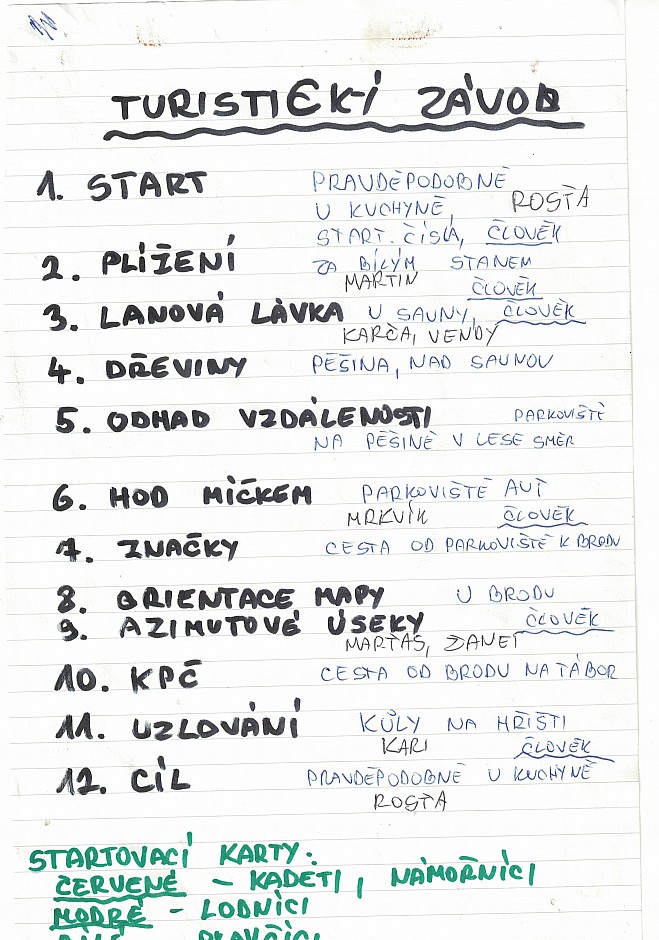 TURISTICKÍ ZÁVOD
1. START PRAVDĚPODOBNĚ
U KUCHYNĚ, ROSŤA
START. ČÍSLA, ČLOVĚK
2. PLÍŽENÍ ZA BÍLÝM STANEM
MARTIN ČLOVĚK
3. LANOVÁ LÁVKA U SAUNY, ČLOVĚK
KARČA, VENDY
4. DŘEVINY PĚŠINA, NAD SAUNOU
5. ODHAD VZDÁLENOSTI PARKOVIŠTĚ
NA PĚŠINĚ V LESE SMĚR
6. HOD MÍČKEM PARKOVIŠTĚ AUT
MRKVÍK ČLOVĚK
7. ZNAČKY CESTA OD PARKOVIŠTĚ K BRODU
8. ORIENTACE MAPY U BRODU
9. AZIMUTOVÉ ÚSEKY ČLOVĚK
MARŤAS, ŽANET
10. KPČ CESTA OD BRODU NA TÁBOR
11. UZLOVÁNÍ KŮLY NA HŘIŠTI
KARI ČLOVĚK
12. CÍL PRAVDĚPODOBNĚ U KUCHYNĚ
ROSŤA
STARTOVACÍ KARTY:
ČERVENÉ - KADETI, NÁMOŘNÍCI
MODRÉ - LODNÍCI